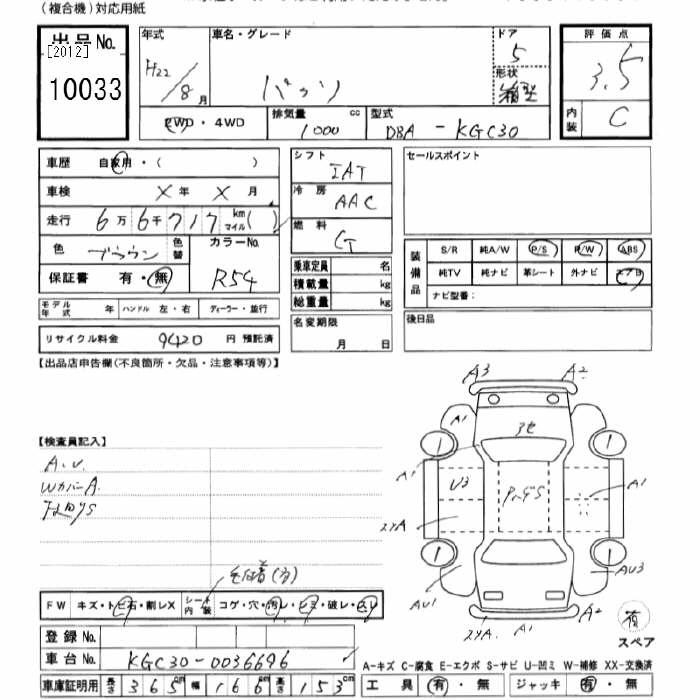 (複合機)対応用紙
出品No.
[2012]
10033
年式
H22/8月
車名・グレード
パッソ
ドア
5
形状
箱型
評価点
3.5
内装
C
2WD・4WD
排気量 cc
1000
型式
DBA - KGC30
車歴 自家用・( )
車検 X年 X月
走行 6万6千717 km マイル( )
色 ブラウン 色替
カラーNo.
R54
保証書 有・無
モデル年式 年 ハンドル 左・右 ディーラー・並行
リサイクル料金 9420 円 預託済
シフト
IAT
冷房
AAC
燃料
G
乗車定員 名
積載量 kg
総重量 kg
名変期限
月 日
セールスポイント
装備品
S/R 純A/W P/S P/W ABS
純TV 純ナビ 革シート 外ナビ エアB
ナビ型番:
後日品
【出品店申告欄(不良箇所・欠品・注意事項等)】
【検査員記入】
A.U.
WカバーA
A3
A2
A1
1
1
A1
U3
A1
A
1
1
AU1
AU3
A1
A2
有
スペア
FW キズ・トビ石・割レX シート内装 コゲ・穴・汚レ・シミ・破レ・スレ
登録No.
車台No. KGC30-0036696
車庫証明用 長さ 365 幅 166 高さ 153
A-キズ C-腐食 E-エクボ S-サビ U-凹ミ W-補修 XX-交換済
工具 有・無 ジャッキ 有・無